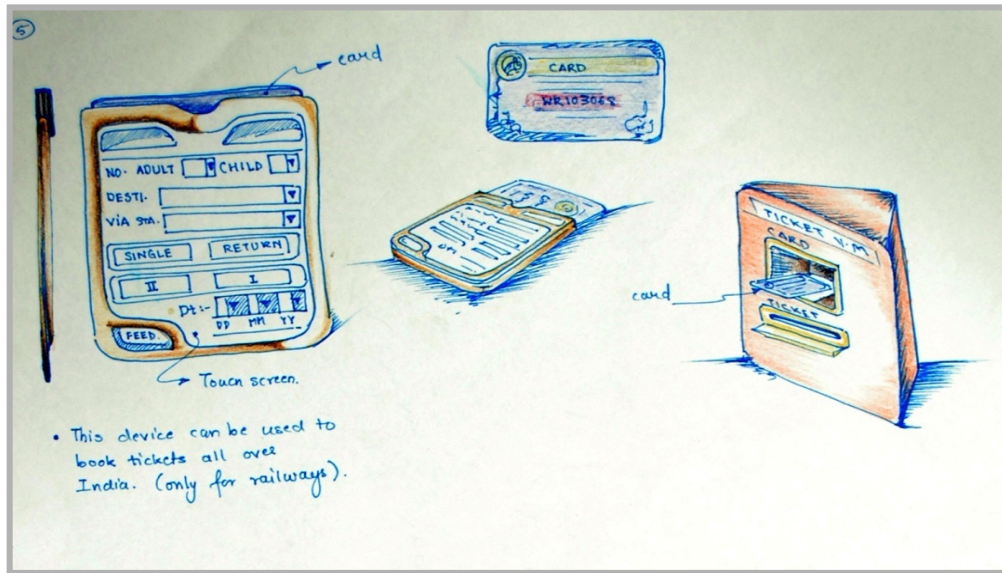 5
card
CARD
WR103068
NO. ADULT
CHILD
DESTI.
VIA STA.
SINGLE
RETURN
II
I
Dt:-
DD MM YY
FEED.
Touch screen.
TICKET V.M
CARD
card
TICKET
• This device can be used to
book tickets all over
India. (only for railways).